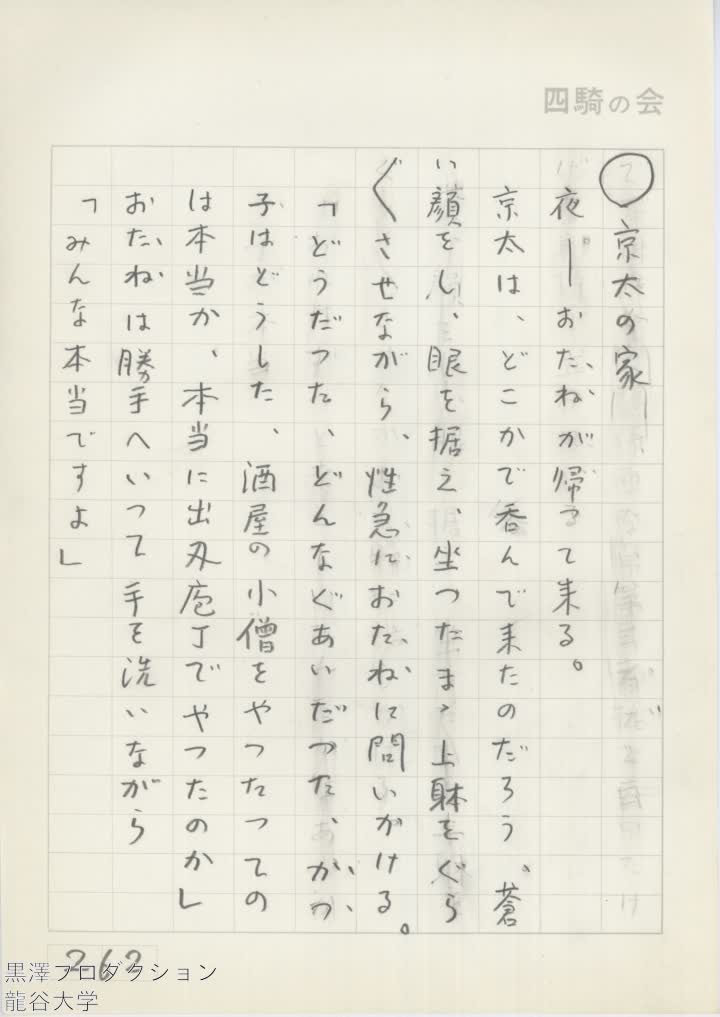 四騎の会
○京太の家
夜―おたねが帰って来る。
京太は、どこかで呑んで来たのだろう、蒼
い顔をし、眼を据え、坐つたまゝ上躰をぐら
〱させながら、性急におたねに問いがける。
「どうだつた、どんなぐあいだつた、かつ
子はどうした、酒屋の小僧をやつたつての
は本当か、本当に出刃庖丁でやつたのか」
おたねは勝手へいつて手を洗いながら
「みんな本当ですよ」
262
黒澤プロダクション
龍谷大学